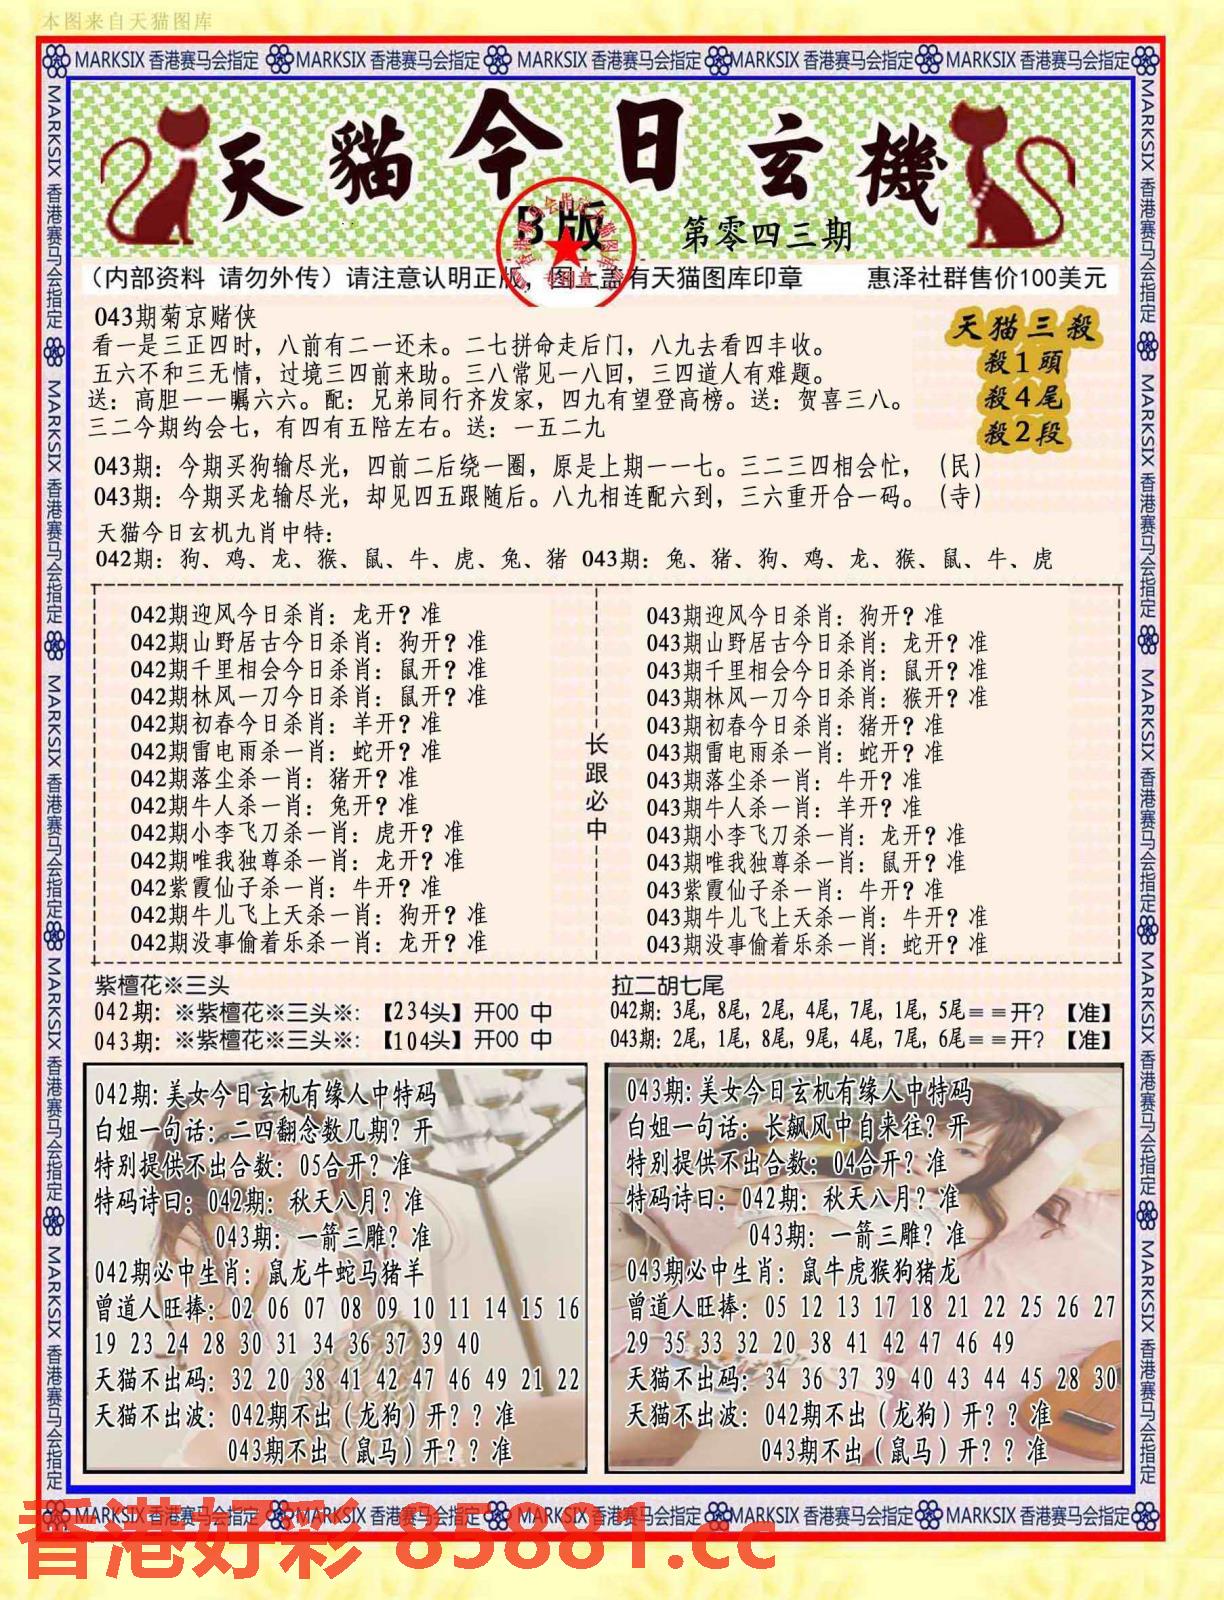 本图来自天猫图库
MARKSIX 香港赛马会指定 MARKSIX 香港赛马会指定 MARKSIX 香港赛马会指定 MARKSIX 香港赛马会指定 MARKSIX 香港赛马会指定
MARKSIX 香港赛马会指定 MARKSIX 香港赛马会指定 MARKSIX 香港赛马会指定 MARKSIX 香港赛马会指定 MARKSIX 香港赛马会指定
MARKSIX 香港赛马会指定 MARKSIX 香港赛马会指定 MARKSIX 香港赛马会指定 MARKSIX 香港赛马会指定 MARKSIX 香港赛马会指定
天貓今日玄機
B版
第零四三期
(内部资料 请勿外传)请注意认明正版,图上盖有天猫图库印章 惠泽社群售价100美元
043期菊京赌侠
看一是三正四时,八前有二一还未。二七拼命走后门,八九去看四丰收。
五六不和三无情,过境三四前来助。三八常见一八回,三四道人有难题。
送:高胆一一瞩六六。配:兄弟同行齐发家,四九有望登高榜。送:贺喜三八。
三二今期约会七,有四有五陪左右。送:一五二九
天猫三殺
殺1頭
殺4尾
殺2段
043期:今期买狗输尽光,四前二后绕一圈,原是上期一一七。三二三四相会忙,(民)
043期:今期买龙输尽光,却见四五跟随后。八九相连配六到,三六重开合一码。(寺)
天猫今日玄机九肖中特:
042期:狗、鸡、龙、猴、鼠、牛、虎、兔、猪 043期:兔、猪、狗、鸡、龙、猴、鼠、牛、虎
042期迎风今日杀肖:龙开?准
042期山野居古今日杀肖:狗开?准
042期千里相会今日杀肖:鼠开?准
042期林风一刀今日杀肖:鼠开?准
042期初春今日杀肖:羊开?准
042期雷电雨杀一肖:蛇开?准
042期落尘杀一肖:猪开?准
042期牛人杀一肖:兔开?准
042期小李飞刀杀一肖:虎开?准
042期唯我独尊杀一肖:龙开?准
042紫霞仙子杀一肖:牛开?准
042期牛儿飞上天杀一肖:狗开?准
042期没事偷着乐杀一肖:龙开?准
长跟必中
043期迎风今日杀肖:狗开?准
043期山野居古今日杀肖:龙开?准
043期千里相会今日杀肖:鼠开?准
043期林风一刀今日杀肖:猴开?准
043期初春今日杀肖:猪开?准
043期雷电雨杀一肖:蛇开?准
043期落尘杀一肖:牛开?准
043期牛人杀一肖:羊开?准
043期小李飞刀杀一肖:龙开?准
043期唯我独尊杀一肖:鼠开?准
043紫霞仙子杀一肖:牛开?准
043期牛儿飞上天杀一肖:牛开?准
043期没事偷着乐杀一肖:蛇开?准
紫檀花※三头
042期:※紫檀花※三头※:【234头】开00 中
043期:※紫檀花※三头※:【104头】开00 中
拉二胡七尾
042期:3尾,8尾,2尾,4尾,7尾,1尾,5尾==开?【准】
043期:2尾,1尾,8尾,9尾,4尾,7尾,6尾==开?【准】
042期:美女今日玄机有缘人中特码
白姐一句话:二四翻念数几期?开
特别提供不出合数:05合开?准
特码诗曰:042期:秋天八月?准
043期:一箭三雕?准
042期必中生肖:鼠龙牛蛇马猪羊
曾道人旺捧:02 06 07 08 09 10 11 14 15 16
19 23 24 28 30 31 34 36 37 39 40
天猫不出码:32 20 38 41 42 47 46 49 21 22
天猫不出波:042期不出(龙狗)开??准
043期不出(鼠马)开??准
043期:美女今日玄机有缘人中特码
白姐一句话:长飙风中自来往?开
特别提供不出合数:04合开?准
特码诗曰:042期:秋天八月?准
043期:一箭三雕?准
043期必中生肖:鼠牛虎猴狗猪龙
曾道人旺捧:05 12 13 17 18 21 22 25 26 27
29 35 33 32 20 38 41 42 47 46 49
天猫不出码:34 36 37 39 40 43 44 45 28 30
天猫不出波:042期不出(龙狗)开??准
043期不出(鼠马)开??准
MARKSIX 香港赛马会指定 MARKSIX 香港赛马会指定 MARKSIX 香港赛马会指定 MARKSIX 香港赛马会指定 MARKSIX 香港赛马会指定
香港好彩 85881.cc